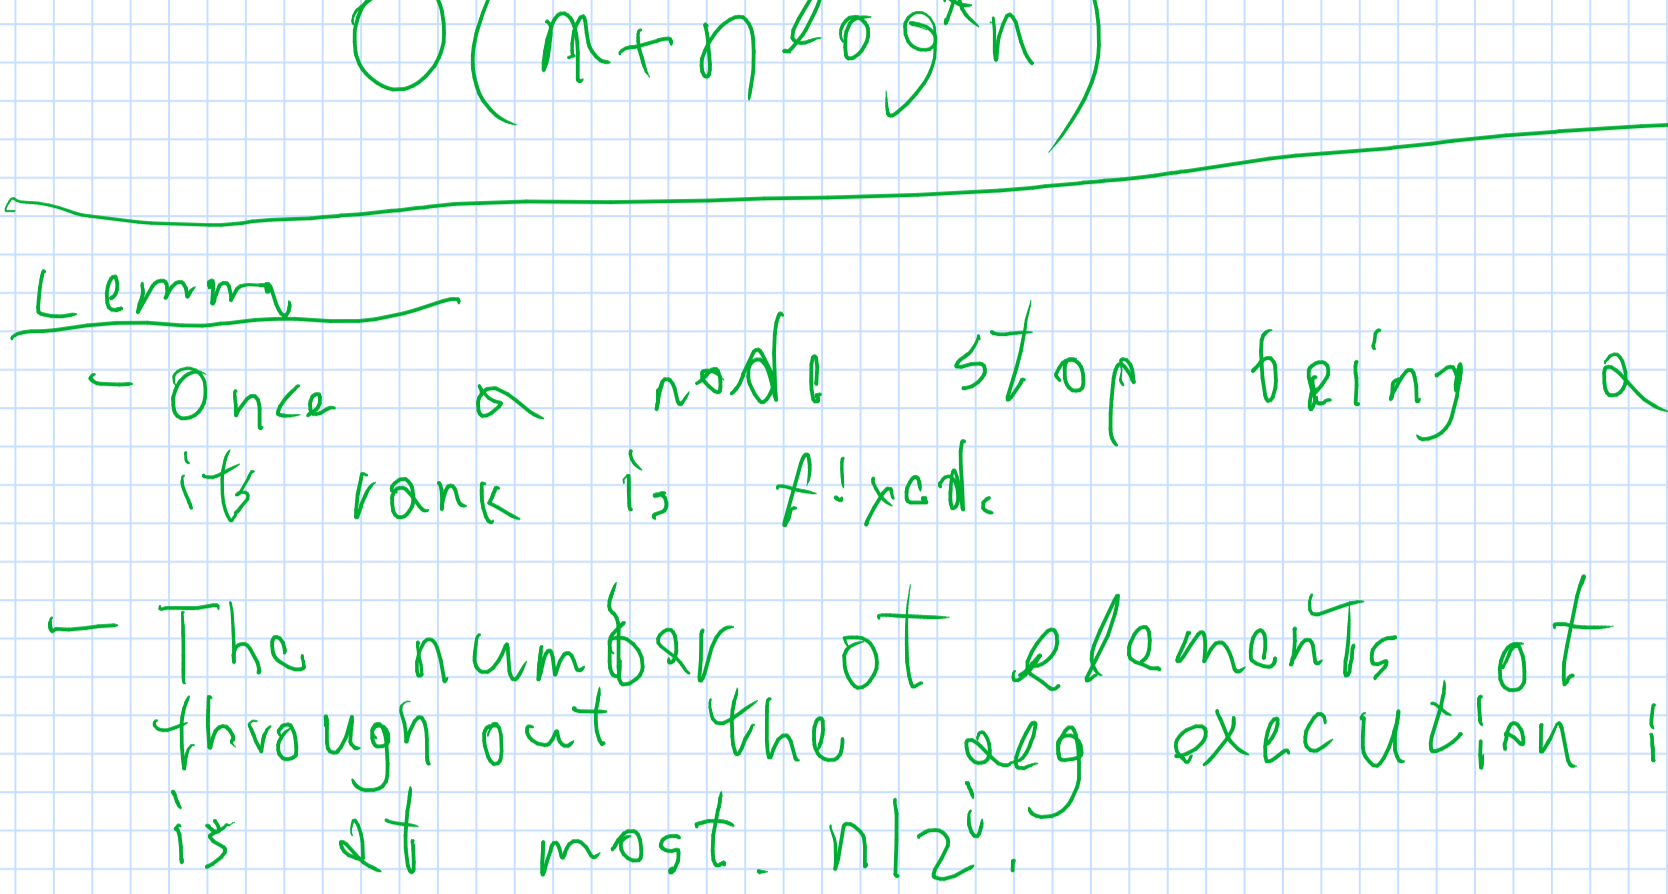 O(m+n log*n)
Lemma
- Once a node stop being a
its rank is fixed.
- The number of elements of
throughout the alg execution i
is at most n/2^i.